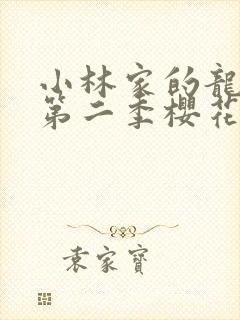 小林家的龍
第二季櫻花
袁家寶